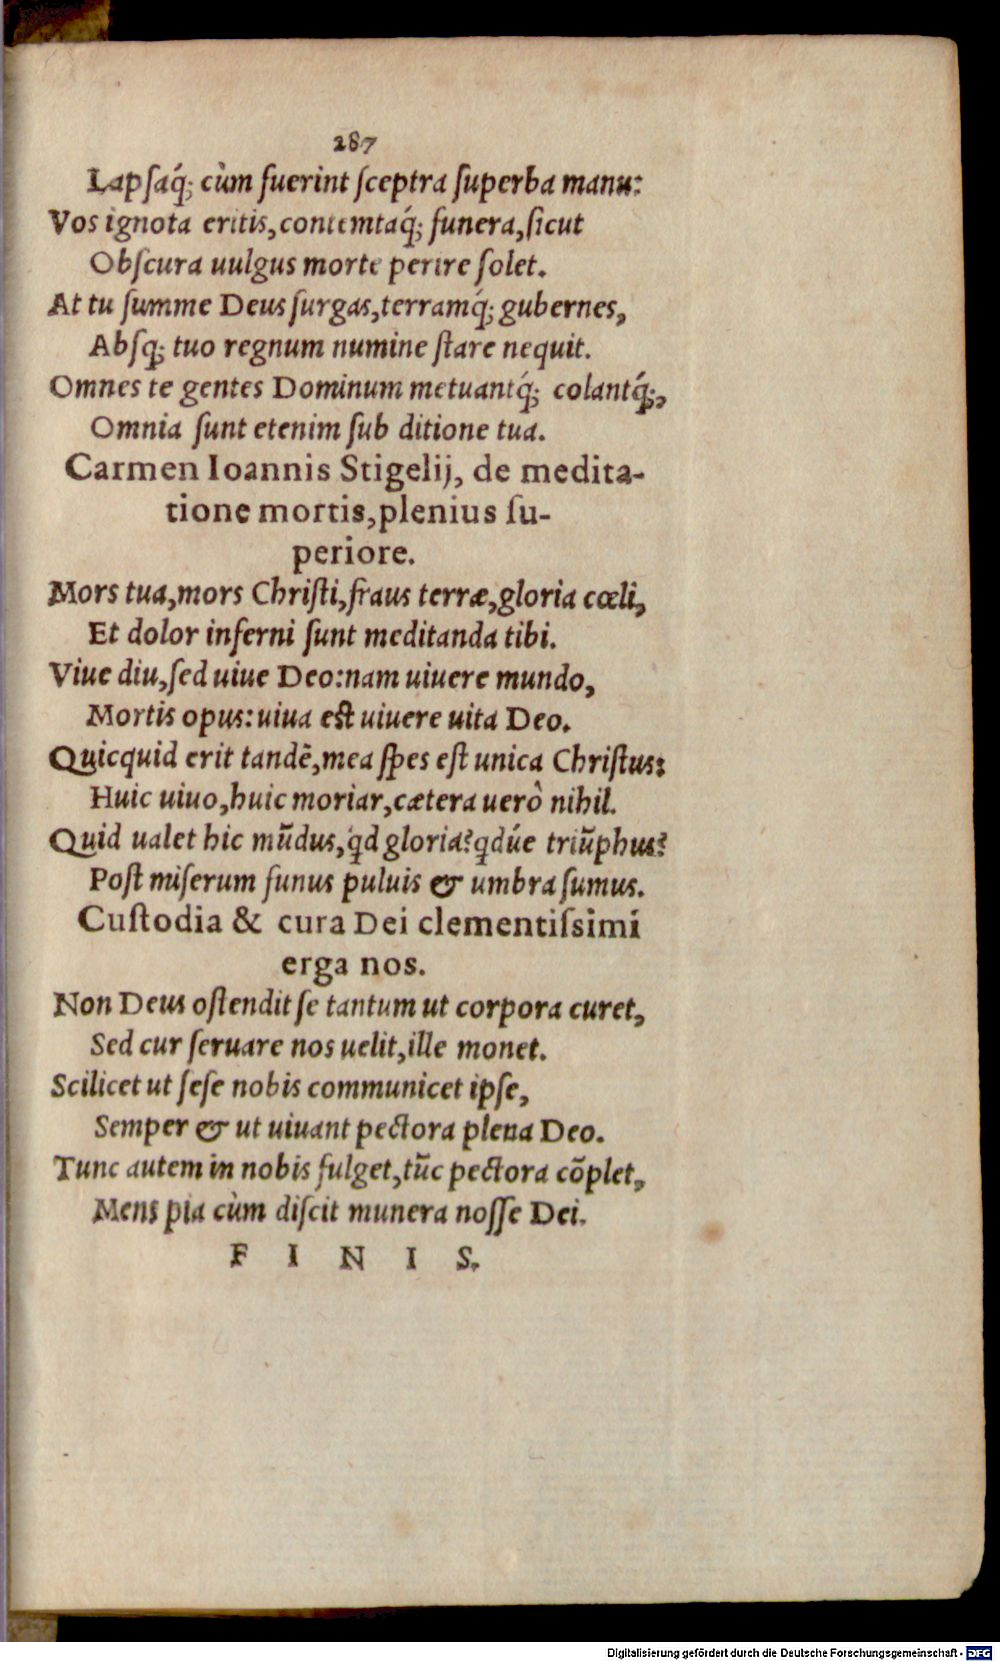 287
Lapsaq́; cùm fuerint sceptra superba manu:
Vos ignota eritis, contemtaq́; funera, sicut
Obscura uulgus morte perire solet.
At tu summe Deus surgas, terramq́; gubernes,
Absq; tuo regnum numine stare nequit.
Omnes te gentes Dominum metuantq́; colantq́;,
Omnia sunt etenim sub ditione tua.
Carmen Ioannis Stigelij, de medita-
tione mortis, plenius su-
periore.
Mors tua, mors Christi, fraus terræ, gloria cœli,
Et dolor inferni sunt meditanda tibi.
Viue diu, sed uiue Deo: nam uiuere mundo,
Mortis opus: uiua est uiuere uita Deo.
Quicquid erit tandē, mea spes est unica Christus:
Huic uiuo, huic moriar, cætera uerò nihil.
Quid ualet hic mūdus, qd gloria? qdúe triūphus?
Post miserum funus puluis & umbra sumus.
Custodia & cura Dei clementissimi
erga nos.
Non Deus ostendit se tantum ut corpora curet,
Sed cur seruare nos uelit, ille monet.
Scilicet ut sese nobis communicet ipse,
Semper & ut uiuant pectora plena Deo.
Tunc autem in nobis fulget, tūc pectora cōplet,
Mens pia cùm discit munera nosse Dei.
F I N I S.
Digitalisierung gefördert durch die Deutsche Forschungsgemeinschaft - DFG